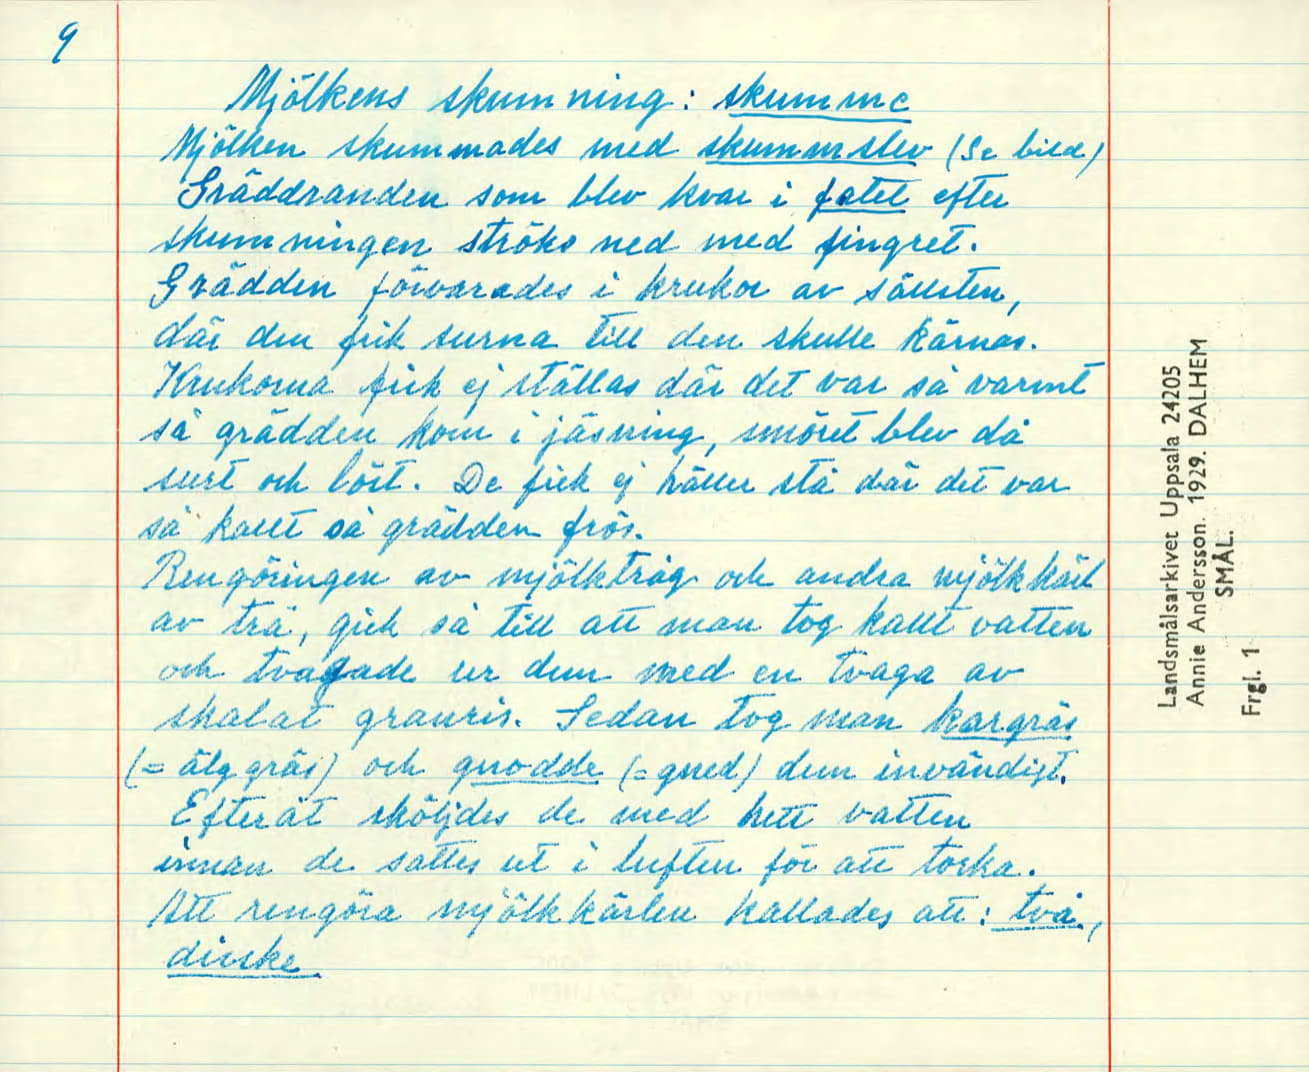 9
Mjölkens skumning: skumme
Mjölken skummades med skummslev (Se bild)
Gräddranden som blev kvar i fatet efter
skumningen ströks ned med fingret.
Grädden förvarades i krukor av sållsten,
där den fick surna till den skulle kärnas.
Krukorna fick ej ställas där det var så varmt
så grädden kom i jäsning, smöret blev då
surt och löst. De fick ej häller stå där det var
så kallt så grädden frös.
Rengöringen av mjölktråg och andra mjölkkärl
av trä, gick så till att man tog kallt vatten
och tvagade ur dem med en tvaga av
skalat granris. Sedan tog man kargräs
(= älggräs) och gnodde (= gned) dem invändigt.
Efteråt sköljdes de med hett vatten
innan de sattes ut i luften för att torka.
Att rengöra mjölkkärlen kallades att: två,
diske
Landsmålsarkivet Uppsala 24205
Annie Andersson. 1929. DALHEM
SMÅL.
Frgl. 1